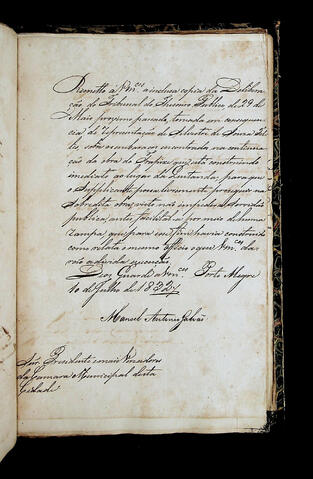 Remetto á Vm.ces a inclusa copia da Delibera-
ção do Tribunal do Thesouro Publico de 29 de
Maio proximo passado, tomada em consequen-
cia da representação de Silvestre de Souza Tel-
les, sobre o embaraço encontrado na continua-
ção da obra do Trapixe que está construindo
immediato ao lugar da Quitanda, para que
o Supplicante possa livremente proseguir na
sobredita obra, visto não impedir a servidão
publica, antes facilital-a por meio de huma
rampa, que para esse fim havia construido
como relata o mesmo officio a que Vm.ces da-
rão a devida execução.
Deos Guarde a Vm.ces Porto Alegre
10 de Julho de 183
Manoel Antonio Galvão
Snr.s Presidente e mais Vereadores
da Camara Municipal desta
Cidade